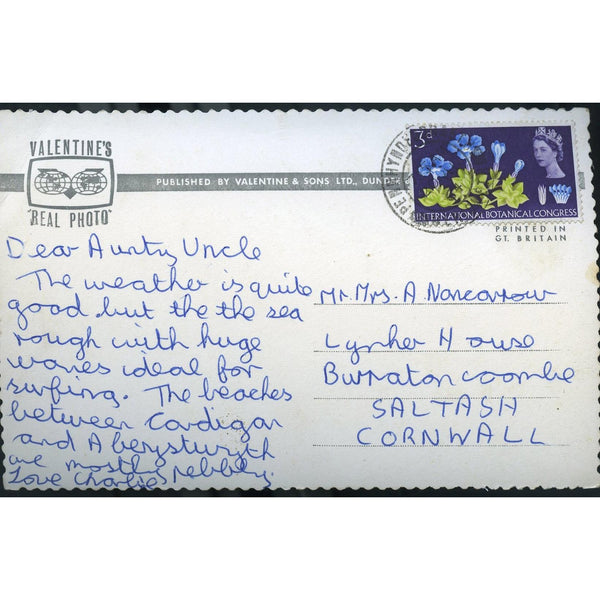 VALENTINE'S
"REAL PHOTO"
PUBLISHED BY VALENTINE & SONS LTD.,
3d
INTERNATIONAL BOTANICAL CONGRESS
PRINTED IN
GT. BRITAIN
Dear Aunty Uncle
The weather is quite
good but the the sea
rough with huge
waves ideal for
surfing. The beaches
between Cardigan
and Aberystwyth
are mostly pebbley.
Love Charlie
Mr. Mrs. A Nancarrow
Lynher House
Burraton coombe
SALTASH
CORNWALL